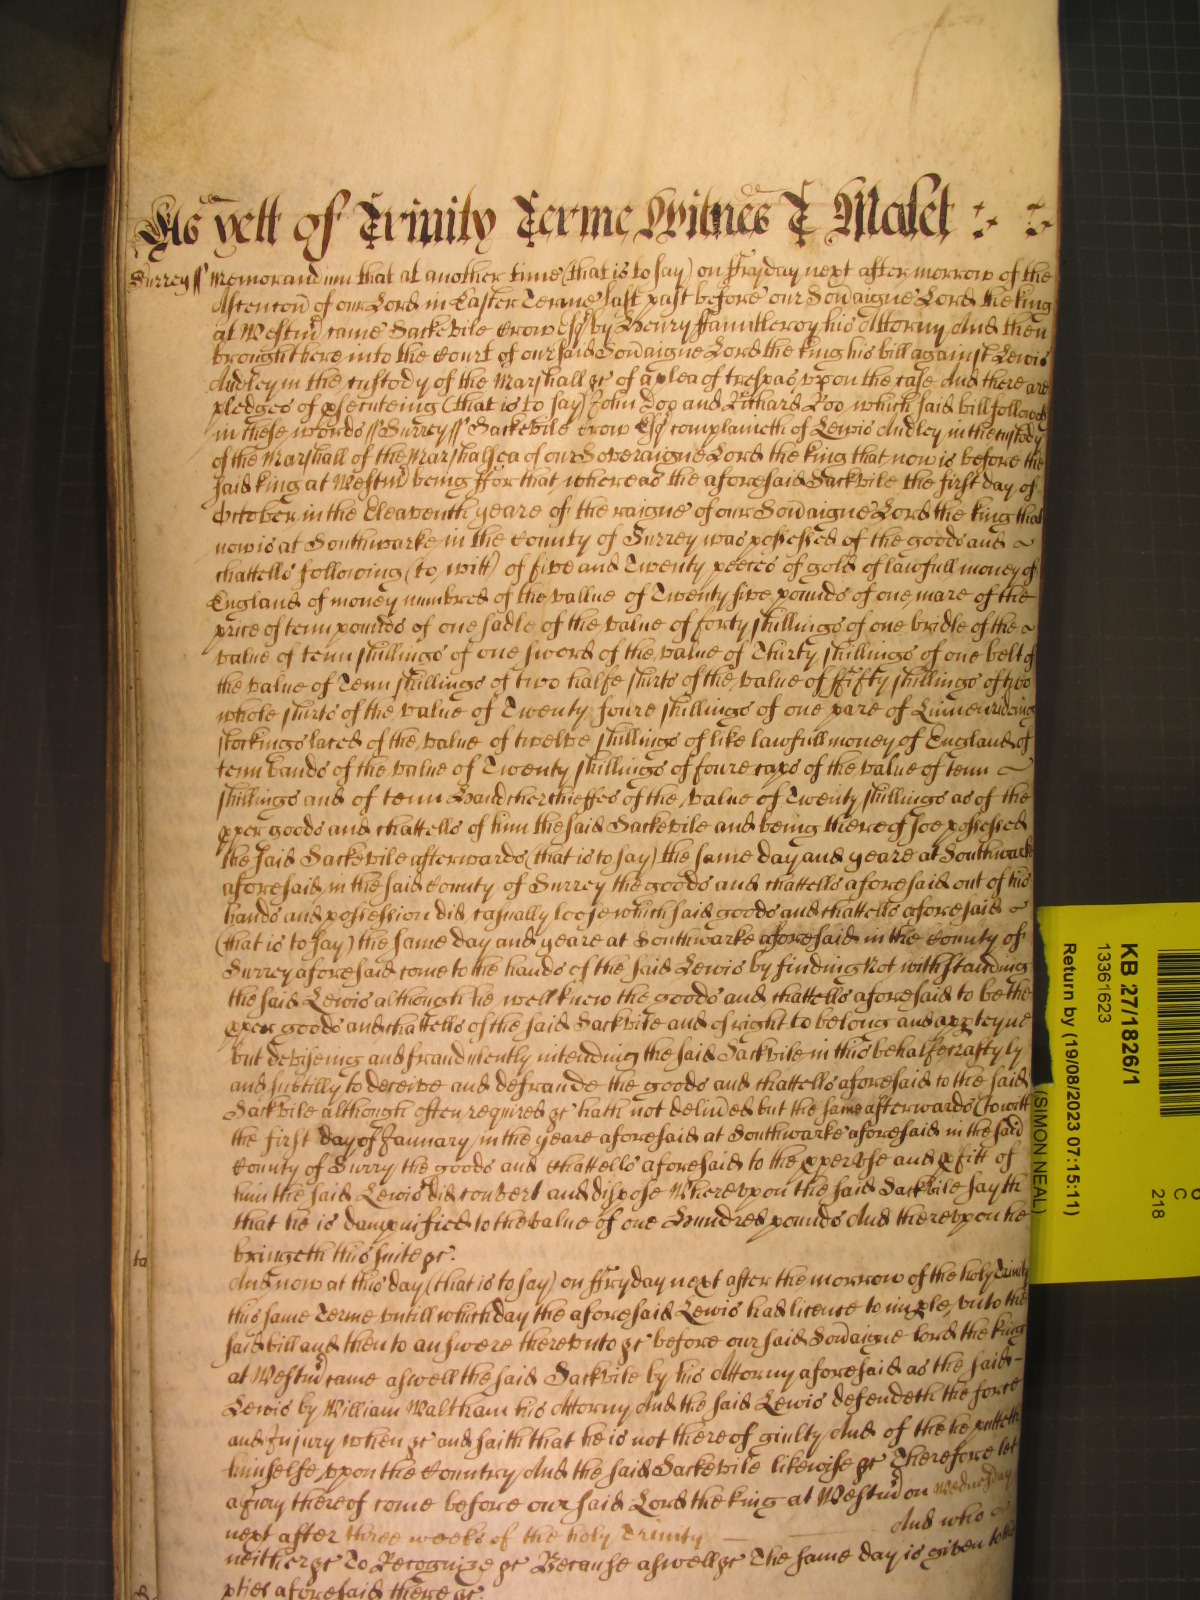 As yett of Trinity Terme Witnes T Malet
Surrey ss Memorandum that at another time (that is to say) on ffryday next after morrow of the
Ascencon of our Lord in Easter Terme last past before our Sovaigne Lord the king
at Westmr came Sackevile Crow Esqr by Henry Fauntleroy his Attorny And then
brought here into the Court of our said Sovaigne Lord the king his bill against Lewis
Audley in the custody of the Marshall &c of a plea of trespas vpon the case And there are
pledges of psecuteing (that is to say) John Doo and Richard Roo which said bill followes
in these words ss Surrey ss Sackevile Crow Esqr complaineth of Lewis Audley in the custody
of the Marshall of the Marshalsea of our Soveraigne Lord the king that now is before the
said king at Westmr being ffor that whereas the aforesaid Sackvile the first day of
October in the Eleaventh yeare of the raigne of our Sovaigne Lord the king that
now is at Southwarke in the County of Surrey was possessed of the goods and
chattells following (to witt) of five and Twenty peeces of gold of lawfull money of
England of money numbred of the vallue of Twenty five pounds of one mare of the
price of tenn pounds of one sadle of the value of forty shillings of one bridle of the
value of tenn shillings of one sword of the value of Thirty shillings of one belt of
the value of Tenn shillings of two halfe shirts of the value of ffifty shillings of two
whole shirts of the value of Twenty foure shillings of one pare of Linnen rideing
stockings laced of the value of twelve shillings of like lawfull money of England of
tenn bands of the value of Twenty shillings of foure caps of the value of tenn
shillings and of tenn Handcherchieffes of the value of Twenty shillings as of the
pper goods and chattells of him the said Sackevile and being thereof soe possessed
the said Sackevile afterwards (that is to say) the same day and yeare at Southwark
aforesaid in the said County of Surrey the goods and chattells aforesaid out of his
hands and possession did casually loose which said goods and chattells aforesaid
(that is to say) the same day and yeare at Southwarke aforesaid in the County of
Surrey aforesaid come to the hands of the said Lewis by finding Notwithstanding
the said Lewis although he well knew the goods and chattells aforesaid to be the
pper goods and chattells of the said Sackvile and of right to belong and apperteyne
but deviseing and fraudulently intending the said Sackvile in this behalfe craftyly
and subtilly to deceive and defraude the goods and chattells aforesaid to the said
Sackvile although often required &c hath not delived but the same afterwards (to witt
the first day of January in the yeare aforesaid at Southwarke aforesaid in the said
County of Surry the goods and chattells aforesaid to the pper vse and pfitt of
him the said Lewis did convert and dispose Wherevpon the said Sackvile sayth
that he is dampnified to the value of one Hundred pounds And therevpon he
bringeth this suite &c.
And now at this day (that is to say) on ffryday next after the morrow of the holy Trinity
this same Terme vntill which day the aforesaid Lewis had licence to imple vnto the
said bill and then to answere therevnto &c before our said Sovaigne lord the king
at Westmr came aswell the said Sackvile by his Attorny aforesaid as the said
Lewis by William Waltham his Attorny And the said Lewis defendeth the force
and Injury when &c and saith that he is not thereof giulty And of the he putteth
himselfe vpon the Country And the said Sackevile likewise &c Therefore let
a jury thereof come before our said Lord the king at Westmr on Wednesday
next after three weeks of the holy Trinity And who
neither &c To Recognize &c Because aswell &c The same day is given to the
pties aforesaid there &c.
ta
KB 27/1826/1
13361623
Return by (19/08/2023 07:15:11)
(SIMON NEAL)
C
218